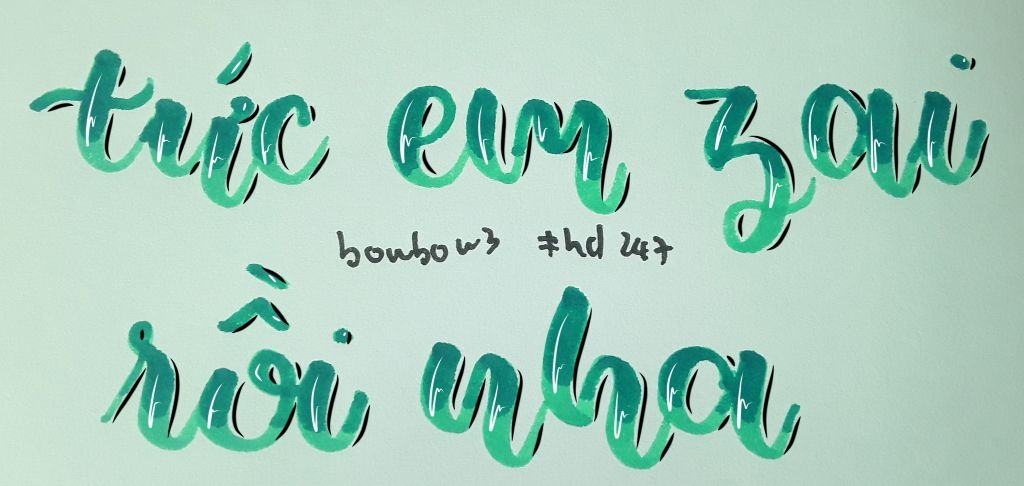 tức em zai
bonbon3 #hd 247
rồi nha